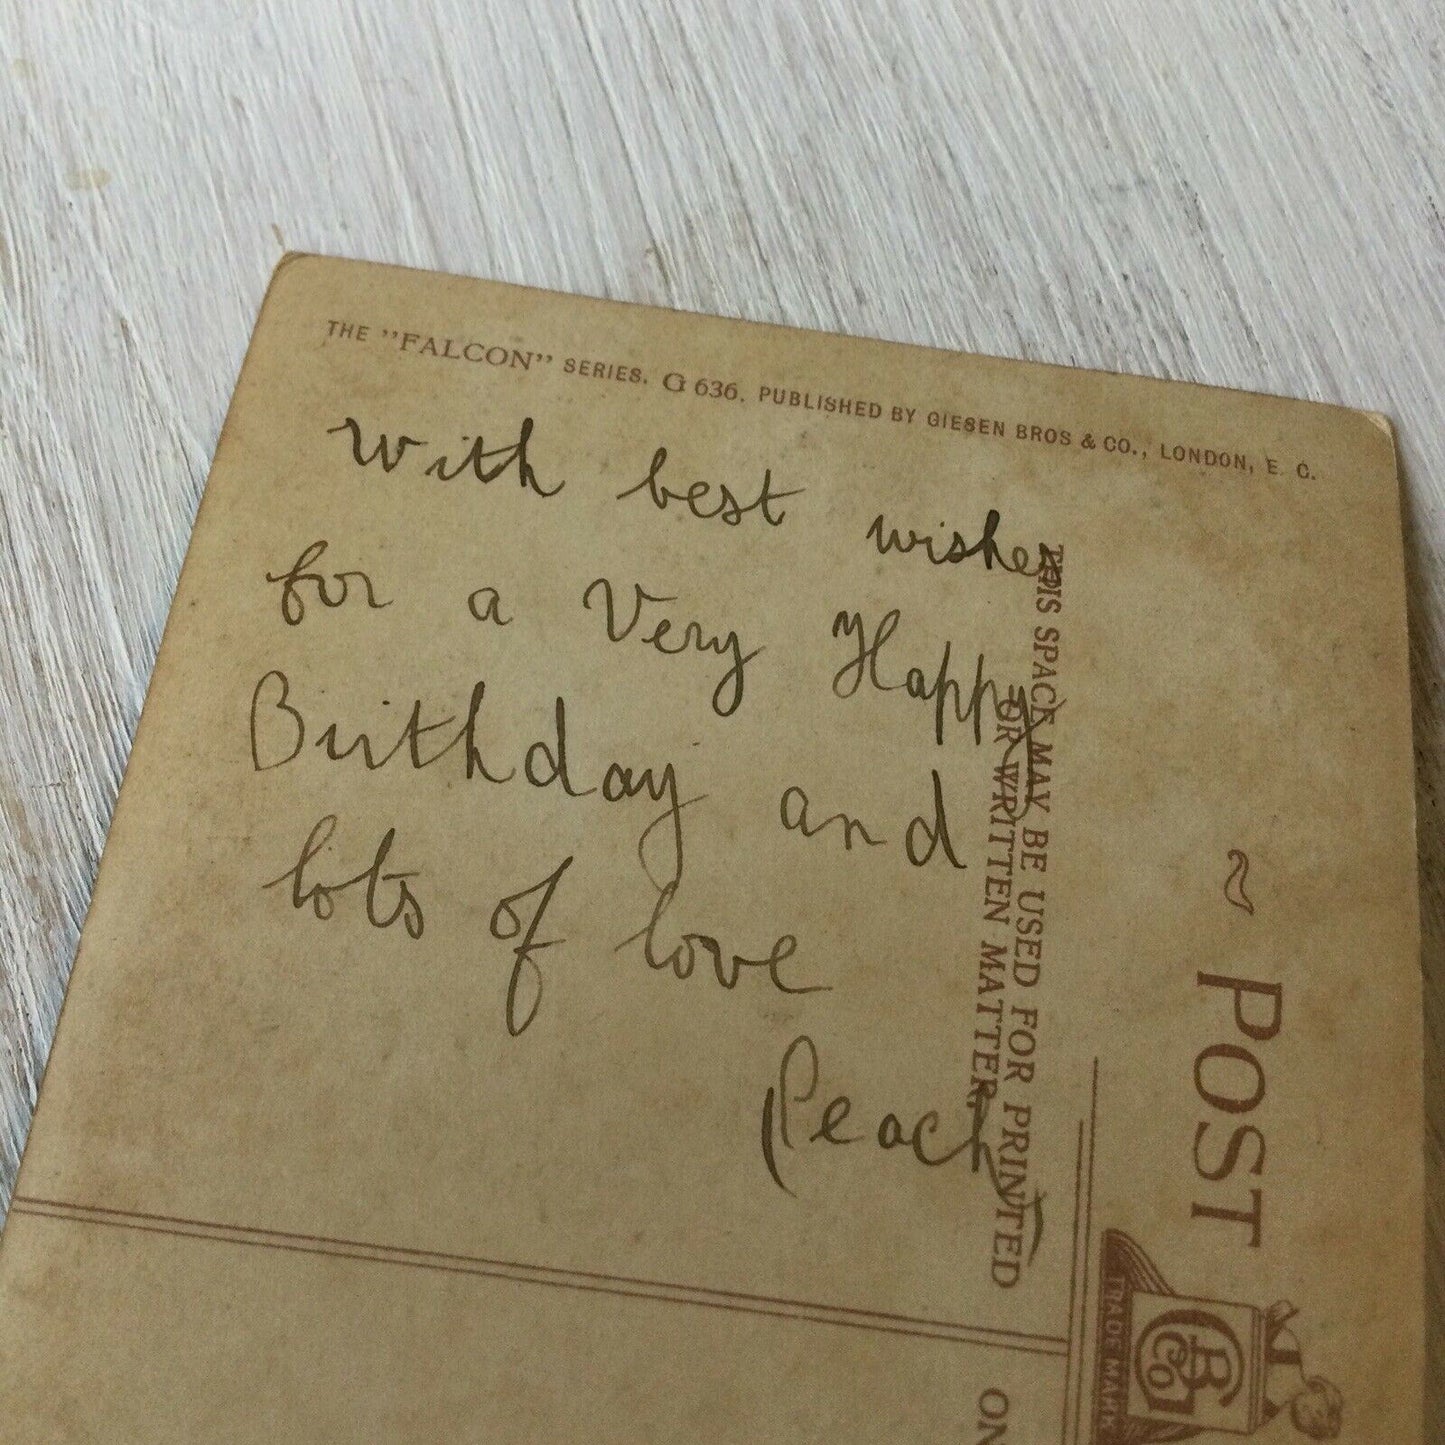 THE "FALCON" SERIES. G 636. PUBLISHED BY GIESEN BROS & CO., LONDON, E. C.
With best wishes
for a Very Happy
Birthday and
lots of love
Peach
THIS SPACE MAY BE USED FOR PRINTED
OR WRITTEN MATTER.
POST
TRADE MARK
GB
Co
ON